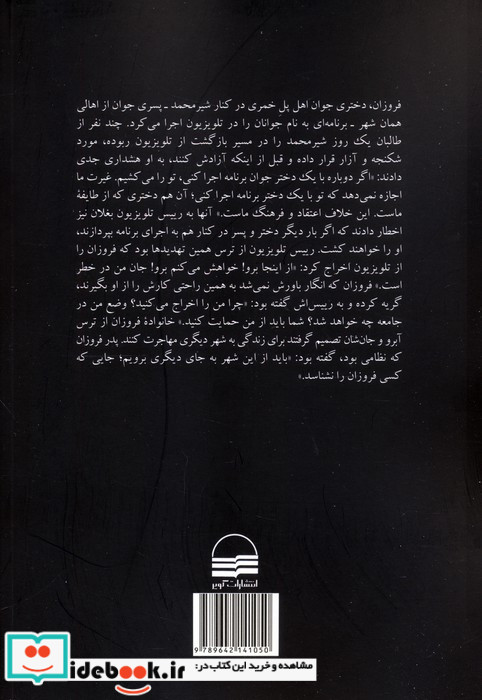 فروزان، دختری جوان اهل پل خمری در کنار شیرمحمد ـ پسری جوان از اهالی
همان شهر ـ برنامه‌ای به نام جوانان را در تلویزیون اجرا می‌کرد. چند نفر از
طالبان یک روز شیرمحمد را در مسیر بازگشت از تلویزیون ربوده، مورد
شکنجه و آزار قرار داده و قبل از اینکه آزادش کنند، به او هشداری جدی
دادند: «اگر دوباره با یک دختر جوان برنامه اجرا کنی، تو را می‌کشیم. غیرت ما
اجازه نمی‌دهد که تو با یک دختر برنامه اجرا کنی؛ آن هم دختری که از طایفهٔ
ماست. این خلاف اعتقاد و فرهنگ ماست.» آنها به رییس تلویزیون بغلان نیز
اخطار دادند که اگر بار دیگر دختر و پسر در کنار هم به اجرای برنامه بپردازند،
او را خواهند کشت. رییس تلویزیون از ترس همین تهدیدها بود که فروزان را
از تلویزیون اخراج کرد: «از اینجا برو! خواهش می‌کنم برو! جان من در خطر
است.» فروزان که انگار باورش نمی‌شد به همین راحتی کارش را از او بگیرند،
گریه کرده و به رییس‌اش گفته بود: «چرا من را اخراج می‌کنید؟ وضع من در
جامعه چه خواهد شد؟ شما باید از من حمایت کنید.» خانوادهٔ فروزان از ترس
آبرو و جان‌شان تصمیم گرفتند برای زندگی به شهر دیگری مهاجرت کنند. پدر فروزان
که نظامی بود، گفته بود: «باید از این شهر به جای دیگری برویم؛ جایی که
کسی فروزان را نشناسد.»
انتشارات کویر
9 789642 141050
idebook.ir
مشاهده و خرید این کتاب در: